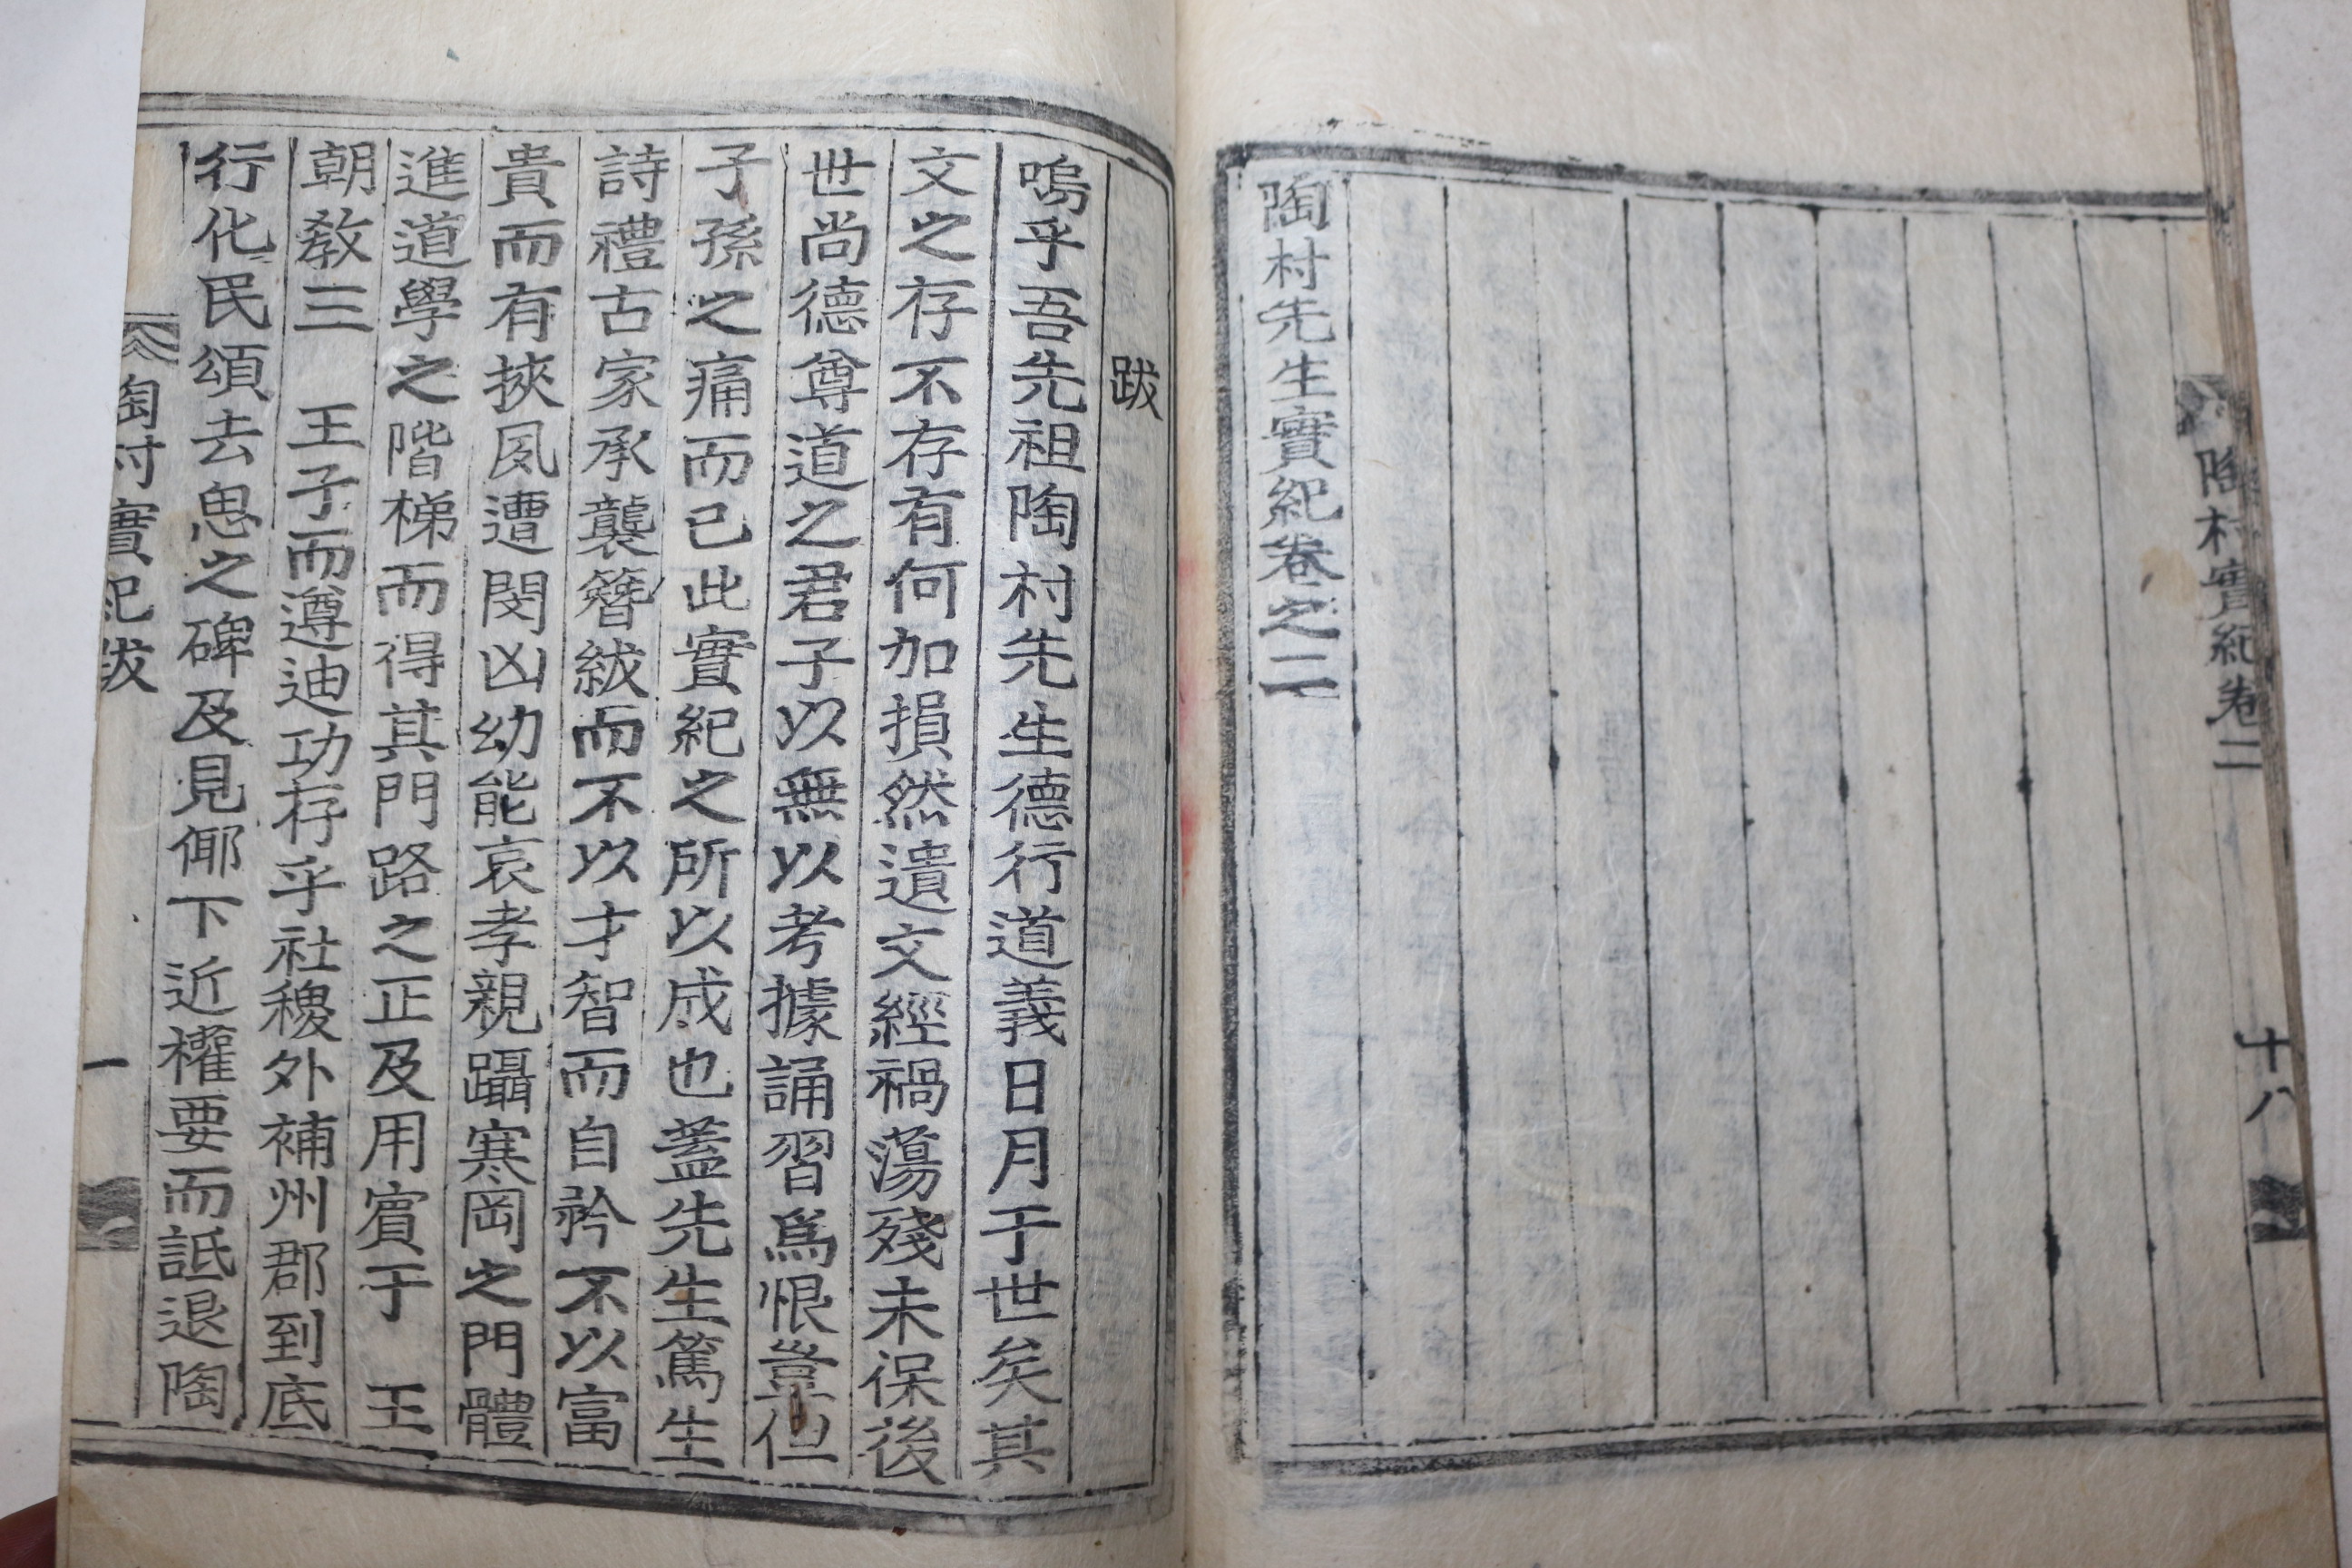 陶村實紀卷二
十八
陶村先生實紀卷之二
跋
嗚乎吾先祖陶村先生德行道義日月于世矣其
文之存不存有何加損然遺文經禍蕩殘未保後
世尚德尊道之君子以無以考據誦習爲恨豈但
子孫之痛而已此實紀之所以成也蓋先生篤生
詩禮古家承襲簪紱而不以才智而自衿不以富
貴而有挾夙遭閔凶幼能哀孝親躡寒岡之門體
進道學之階梯而得其門路之正及用賓于 王
朝敎三 王子而遵迪功存乎社稷外補州郡到底
行化民頌去思之碑及見倻下近權要而詆退陶
陶村實紀跋
一